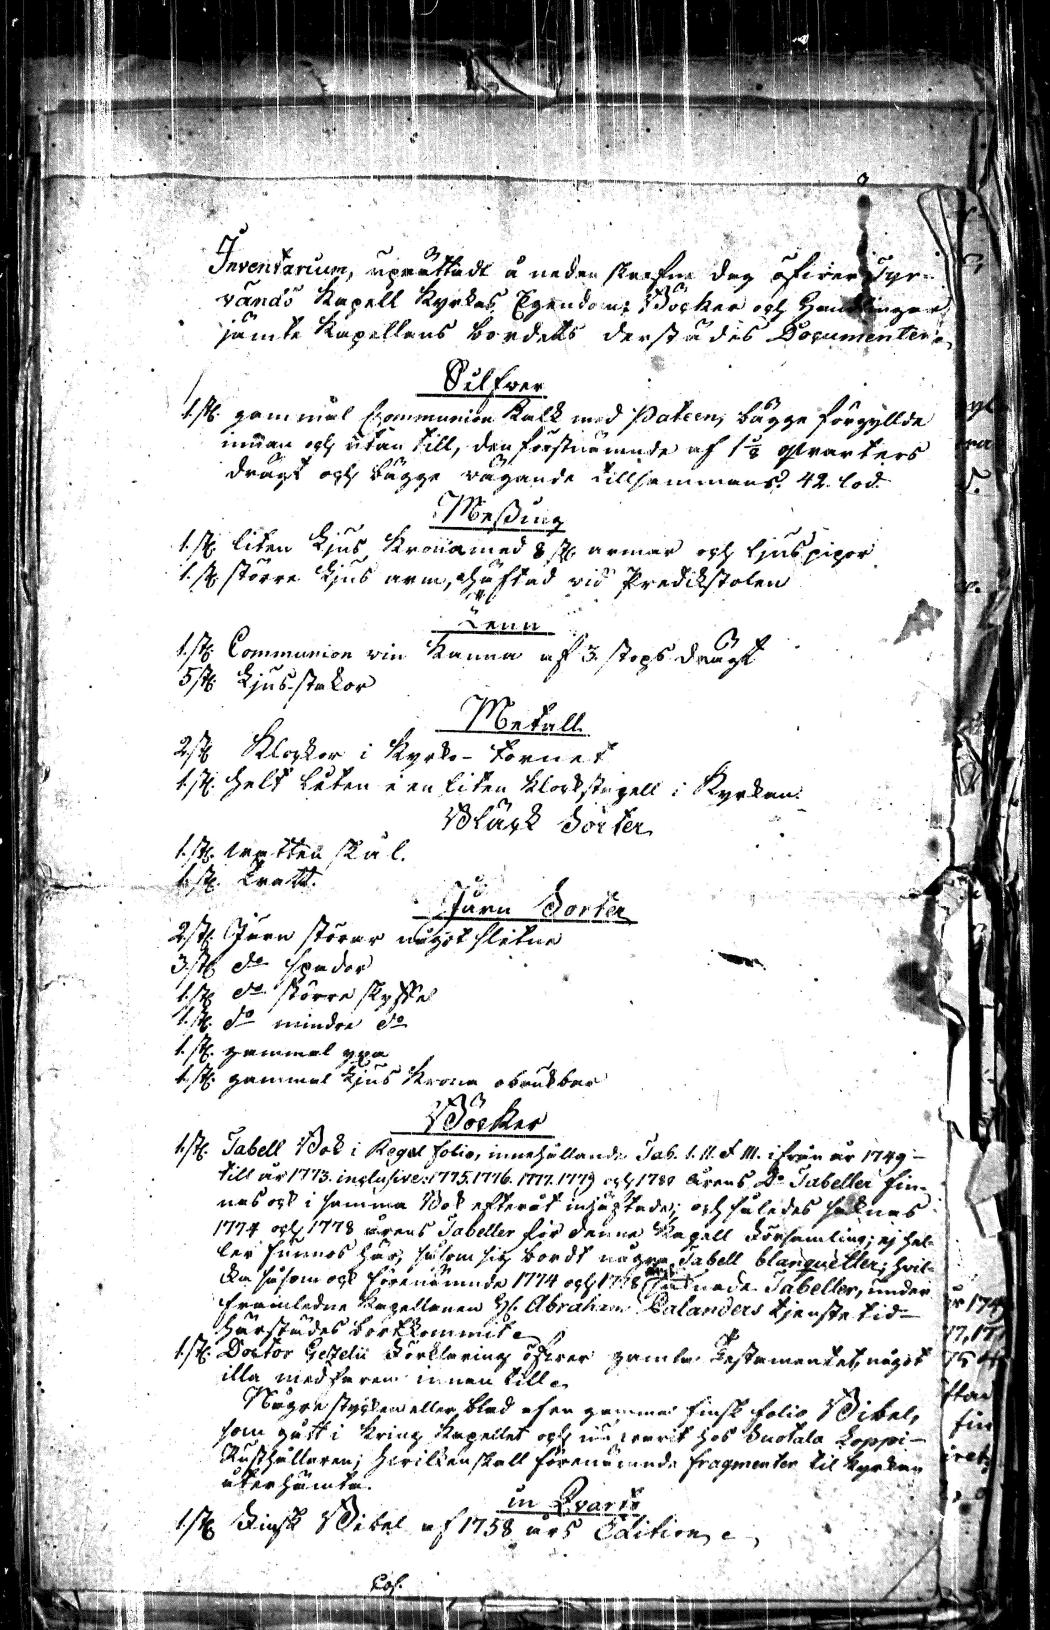 Inventarium, uprättadt å nedan skrefne dag öfwer Tyr-
vändö Kapell Kyrkas Egendom, Böcker och Handlingar
jämte Kapellans bordetts derstädes Documenter.
Silfwer
1. st. gammal Communion Kalk med Paten, bägge förgyllde
innan och utan till, den förstnämnde af 1½ qwarters
drägt och bägge vägande tillsammans 42. lod.
Meßing
1. st. liten Ljus Krona med 8 st. armar och ljuspipor
1. st. större Ljus arm, häftad vid Predikstolen
Tenn
1. st. Communion vin Kanna af 3. stops drägt
5 st. Ljus-stakar
Metall
2 st. Klockor i Kyrko-tornet
1. st. helt liten i en liten Klockstapell i Kyrkan.
Bläck Sorter
1. st. vatten skål.
1. st. tratt.
Järn Sorter
2. st. Järn störar något slitne
3. st. do spador
1. st. do större skyffel
1. st. do mindre do
1. st. gammal yxa
1. st. gammal Ljus Krona obrukbar
Böcker
1. st. Tabell Bok i Regal folio, innehållande Tab. I. II. & III. ifrån år 1749-
till år 1773. inclusive: 1775. 1776. 1777. 1779 och 1780 årens Do Tabeller fin-
nas ock i samma Bok efteråt inhäftade; och således saknas
1774 och 1778 årens Tabeller för denne Kapell Församling; ej hel-
ler finnes här, såsom sig bordt några Tabell blanquetter; hvil-
ka såsom ock förenämnde 1774 och 1778 årens Tabeller, under
framledne Kapellanen H. Abraham Calanders tjenste tid-
härstädes bortkommit.
1. st. Doctor Gezelii Förklaring öfwer gamla Testamentet, något
illa medfaren innan till.
Några stycken eller blad af en gammal finsk folio Bibel,
som gått i Kring Kapellet och nu varit hos Suotala Loppi-
Rusthållaren; hvilken skall förenämnde fragmenter til Kyrkan
återhämta.
in Qvarto
1. st. Finsk Bibel af 1758 års Edition.